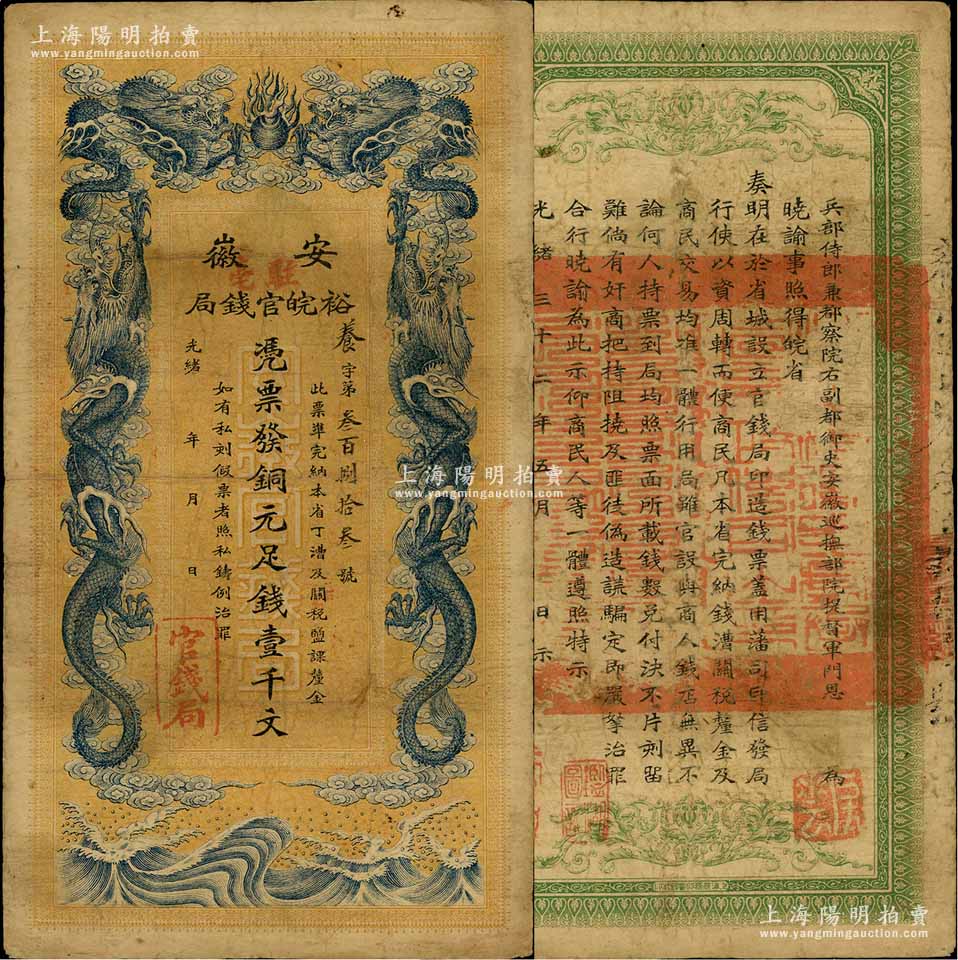 上海陽明拍賣
www.yangmingauction.com
安徽
裕皖官錢局
養字第叁百捌拾叁號
此票準完納本省丁漕及關稅鹽課釐金
憑票發銅元足錢壹千文
如有私刻假票者照私鑄例治罪
光緒 年 月 日
官錢局
兵部侍郎兼都察院右副都御史安徽巡撫部院提督軍門恩 為
曉諭事照得皖省
奏明在於省城設立官錢局印造錢票蓋用藩司印信發局
行使以資周轉而便商民凡本省完納錢漕關稅釐金及
商民交易均准一體行用局雖官設與商人錢店無異不
論何人持票到局均照票面所載錢數兌付決不片刻留
難倘有奸商把持阻撓及匪徒偽造謀騙定即嚴拏治罪
合行曉諭為此示仰商民人等一體遵照特示
光緒三十二年五月 日示
上海陽明拍賣
www.yangmingauction.com
上海陽明拍賣
www.yangmingauction.com
上海陽明拍賣
www.yangmingauction.com